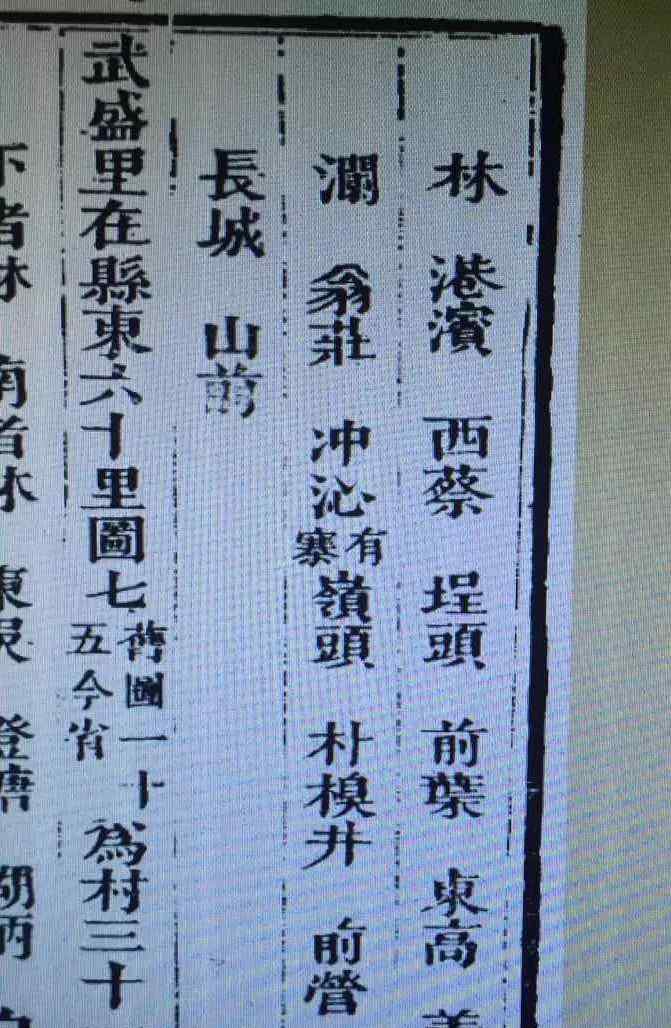 林 港濱 西蔡 埕頭 前葉 東高
瀾 翁莊 冲沁 有寨 嶺頭 朴模井 前營
長城 山前
武盛里在縣東六十里圖七 舊圖一十五今省 爲村三十